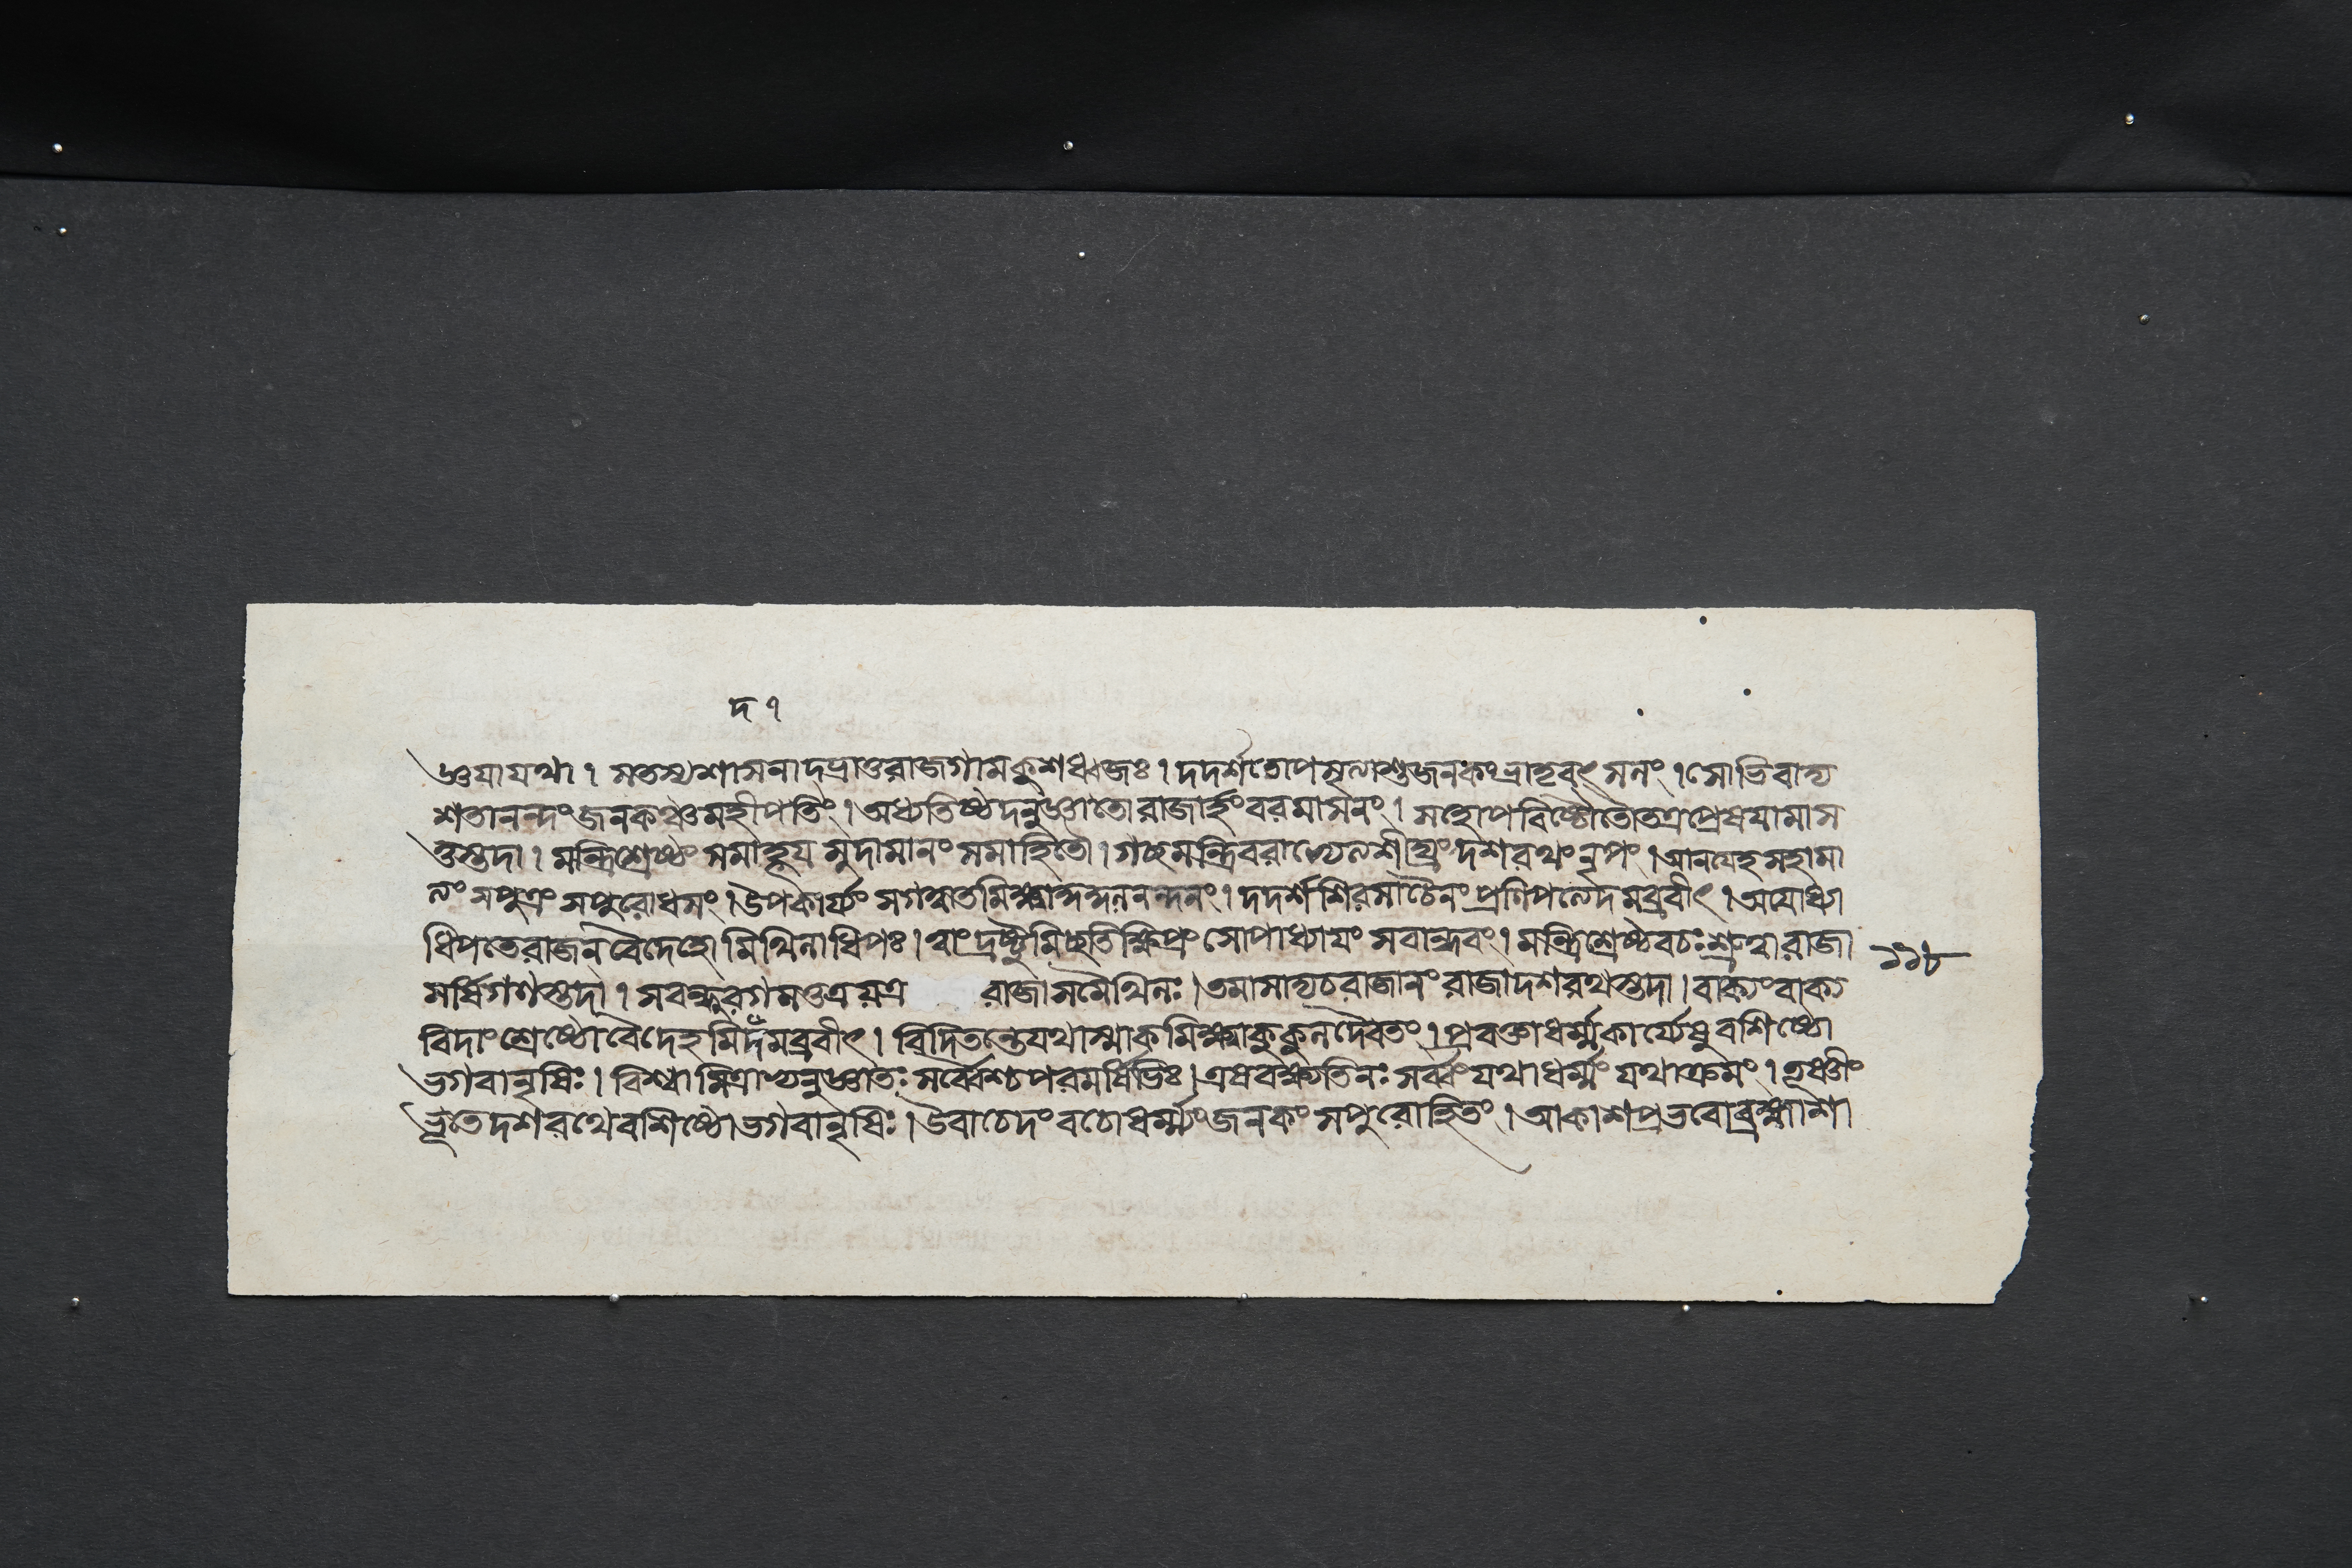 দ १
জ্ঞযাযথা। সতস্যশাসনাদ্দপ্রাপ্তরাজগামকুশধ্বজঃ। দদর্শতোপসৃত্যাশুজনকংভ্রাতৃবৎসলং। সোভিবাদ্য
শতানন্দং জনকঞ্চমহীপতিং। অধ্যতিষ্ঠদনুজ্ঞাতোরাজার্হংবরমাসনং। সহোপবিষ্টৌতৌতত্রপ্রেষযামাস
তুস্তদা। মন্ত্রিশ্রেষ্ঠং সমাহূয সুদামানং সমাহিতৌ। গচ্ছমন্ত্রিবরাভ্যেত্যশীঘ্রংদশরথংনৃপং। আনযেহসহামা
ত্যং সপুত্রং সপুরোধসং। উপকার্য্যাং সগত্বাতমিক্ষ্বাকুকুলনন্দনং। দদর্শশিরসাচৈনংপ্রণিপত্যেদমব্রবীৎ। অযোধ্যা
ধিপতেরাজন্ বৈদেহোমিথিলাধিপঃ। ত্বাংদ্রষ্টুমিচ্ছতিক্ষিপ্রং সোপাধ্যাযং সবান্ধবং। মন্ত্রিশ্রেষ্ঠবচঃশ্রুত্বারাজা
সর্ষিগণস্তদা। সবন্ধুরগমত্তত্রযত্র রাজাসমৈথিলঃ। তমাসাদ্যচরাজানংরাজাদশরথস্তদা। বাক্যংবাক্য
বিদাংশ্রেষ্ঠোবৈদেহমিদমব্রবীৎ। বিদিতন্তেযথাস্মাকমিক্ষ্বাকুকুলদৈবতং। প্রবক্তাধর্ম্মকার্য্যেষুবশিষ্ঠো
ভগবানৃষিঃ। বিশ্বামিত্রাভ্যনুজ্ঞাতঃ সর্ব্বৈশ্চপরমর্ষিভিঃ। এষবক্ষ্যতিনঃসর্ব্বংযথাধর্ম্মং যথাক্রমং। তূষ্ণীং
ভূতেদশরথেবশিষ্ঠোভগবানৃষিঃ। উবাচেদংবচোধর্ম্ম্যংজনকং সপুরোহিতং। আকাশপ্রভবোব্রহ্মাশা
১১৮